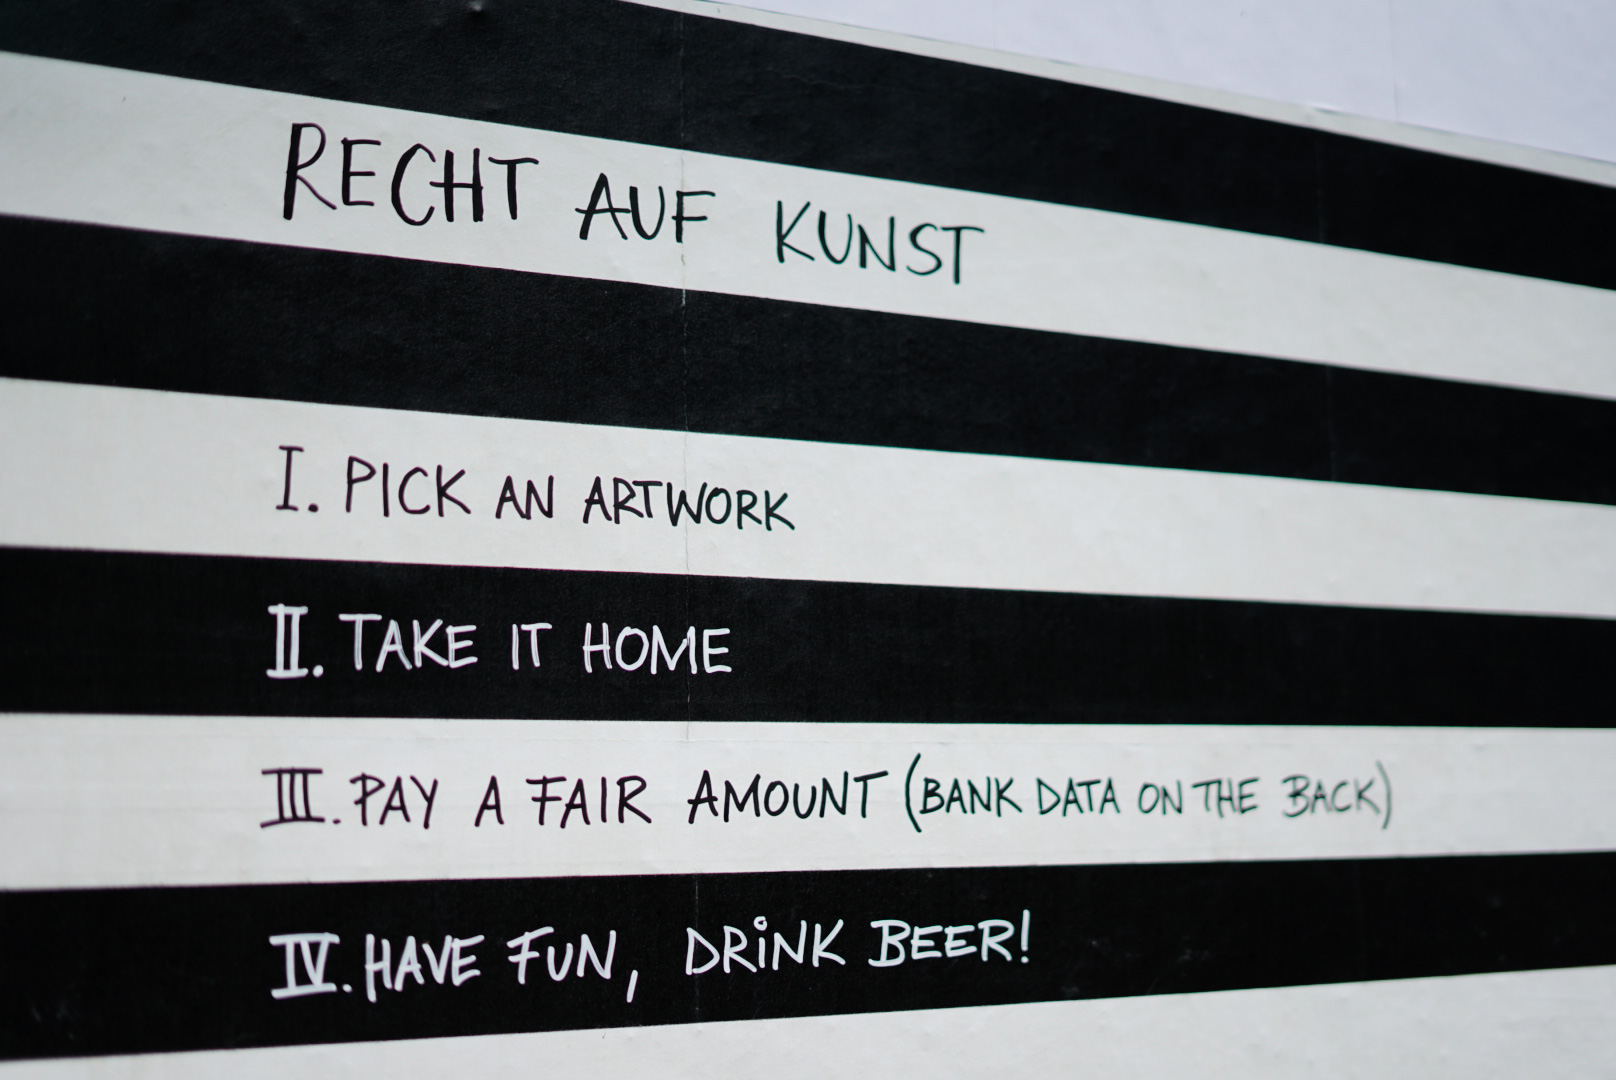 RECHT AUF KUNST
I. PICK AN ARTWORK
II. TAKE IT HOME
III. PAY A FAIR AMOUNT (BANK DATA ON THE BACK)
IV. HAVE FUN, DRINK BEER!